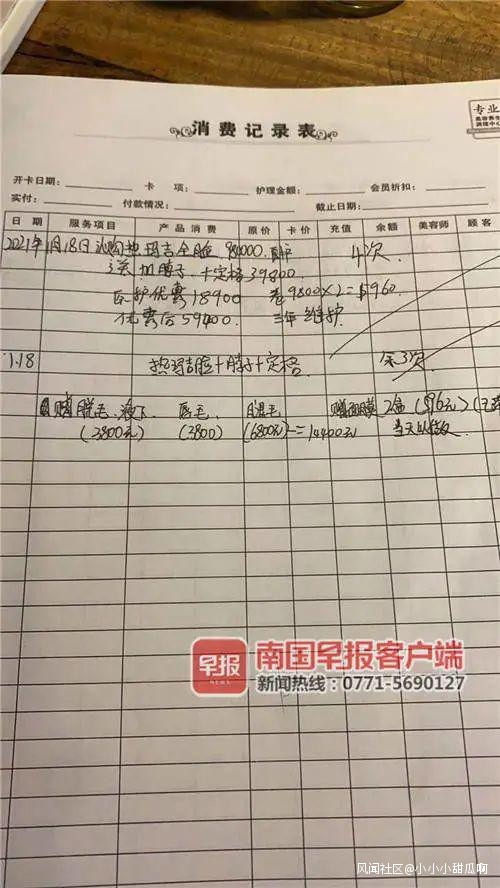 专业
消费记录表
开卡日期： 卡 项： 护理金额： 会员折扣：
实付： 付款情况： 截止日期：
日 期 服务项目 产品消费 原价 卡价 充值 余额 美容师 顾客
2021年1月18日 热玛吉全脸 98000 4次
送 脖子 +定格39800
优惠18900 9800×2=
优惠后59400 三年维护
1.18 热玛吉脸+脖子+定格 余3次
赠脱毛 腋下 唇毛 腿毛 赠面膜2盒(596元)
(3800元) (3800) (6800元)=14400元 当天
早报
NEWS
南国早报客户端
新闻热线：0771-5690127
风闻社区@小小小甜瓜啊